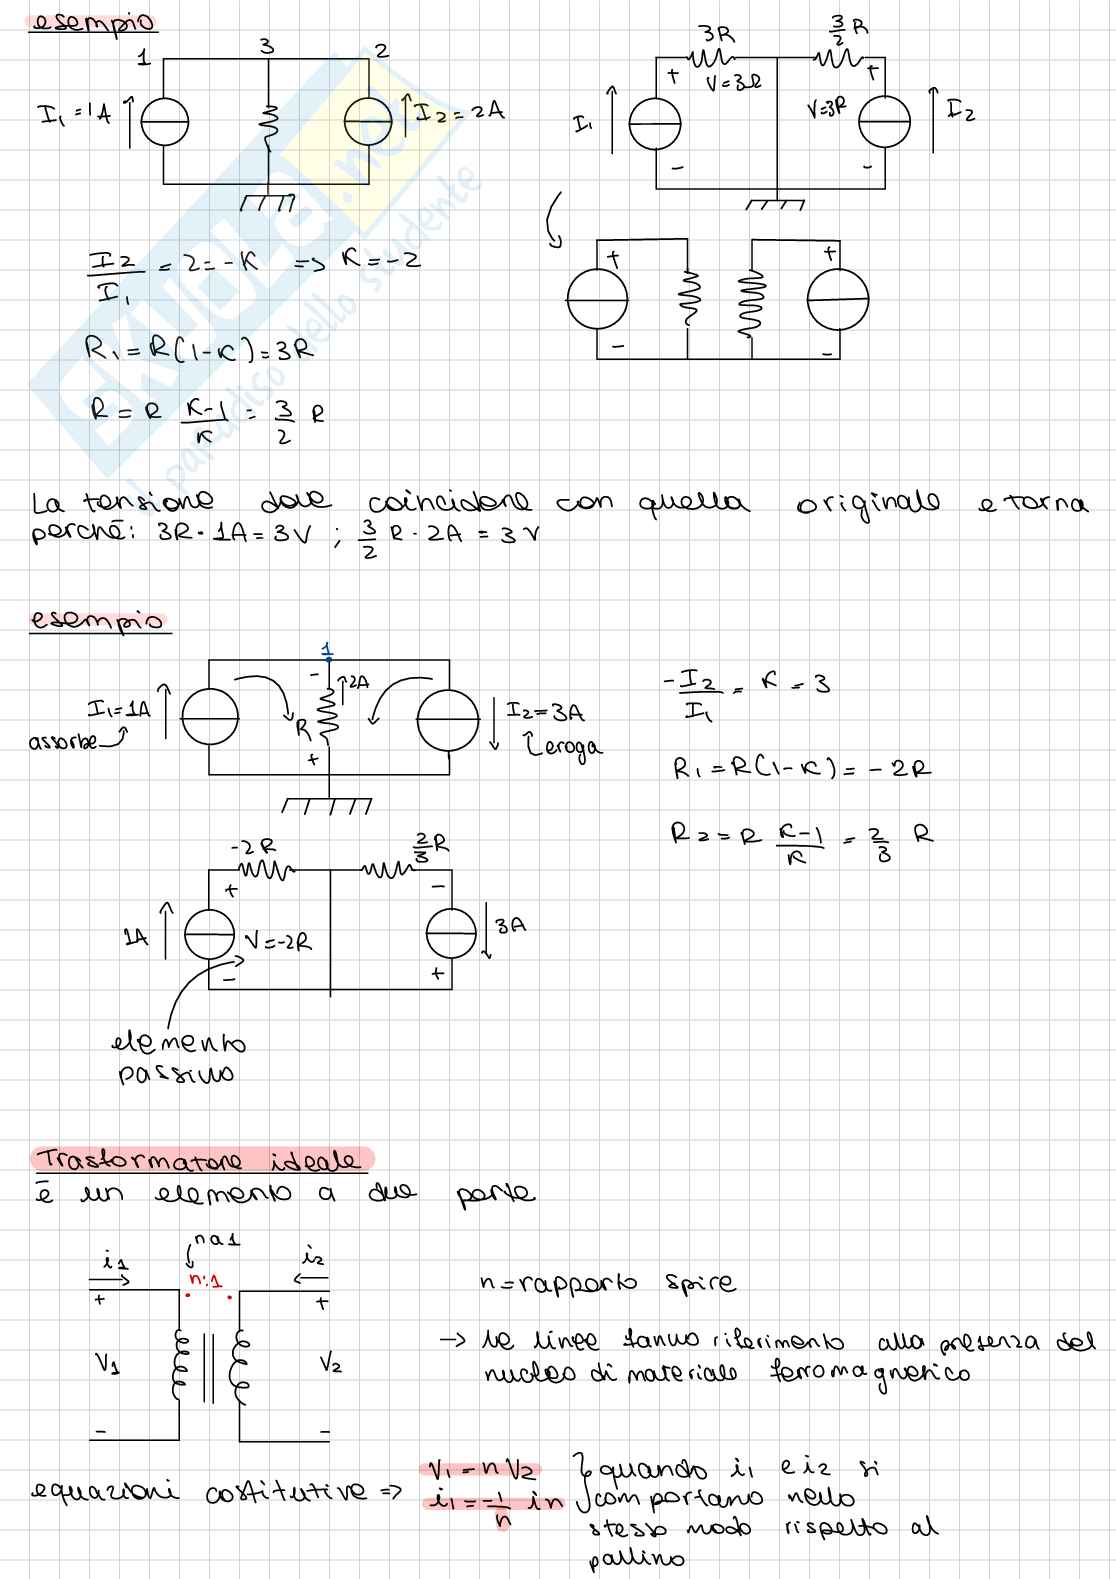 esempio
1 3 2
I₁=1A
I₂=2A
3R 3/2 R
+ V=3R +
V=3R
I₁ I₂
- -
+ +
- -
I2/I₁ = 2 = -K => K = -2
R₁ = R(1-K) = 3R
R = R K-1/K = 3/2 R
La tensione dove coincidere con quella originale e torna
perchē: 3R · 1A = 3V ; 3/2 R · 2A = 3V
esempio
1
- 2A
I₁=1A
assorbe
R
+
I₂=3A
eroga
-I2/I₁ = K = 3
R₁ = R(1-K) = -2R
R2 = R K-1/K = 2/3 R
-2R 2/3R
+ -
1A V=-2R 3A
- +
elemento
passivo
Trasformatore ideale
ē un elemento a due porte
na1
i1 n:1 i2
+ +
V1 V2
- -
n=rapporto spire
→ le linee fanno riferimento alla presenza del
nucleo di materiale ferromagnetico
equazioni costitutive =>
V₁ = n V2
i₁ = -1/n in
quando i₁ e i2 si
comportano nello
stesso modo rispetto al
pallino
SKUOLA.net
il paradiso dello studente